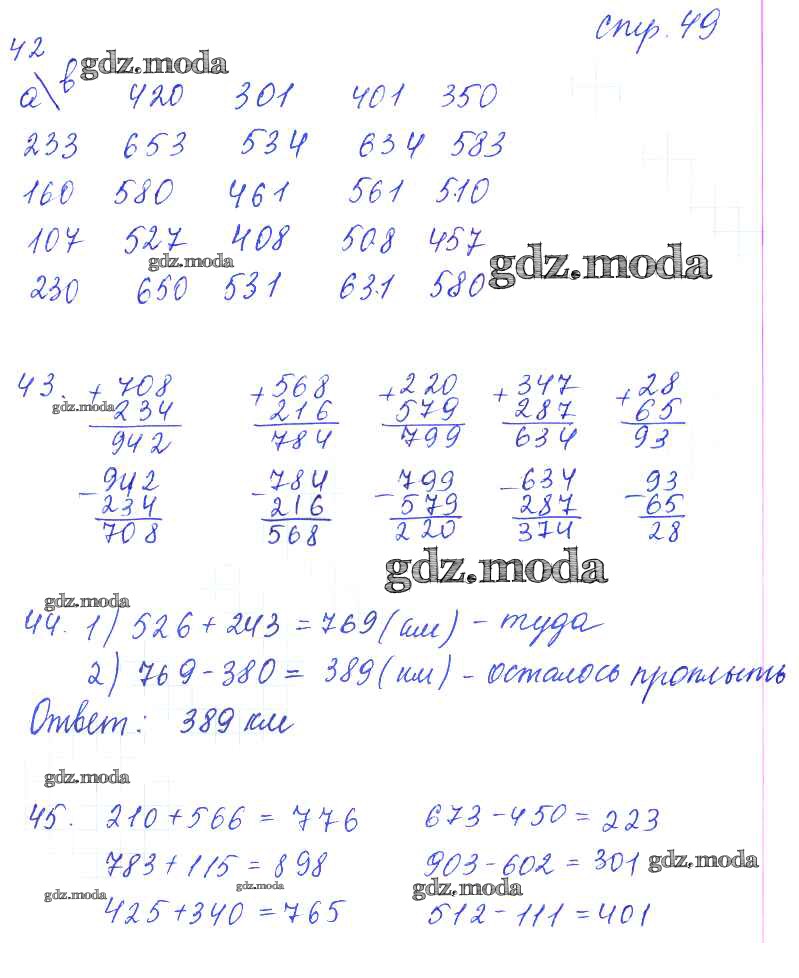 стр. 49
42
gdz.moda
а\в 420 301 401 350
233 653 534 634 583
160 580 461 561 510
107 527 408 508 457
gdz.moda
gdz.moda
230 650 531 631 580
43. +708 +568 +220 +347 +28
gdz.moda
234 216 579 287 65
942 784 799 634 93
-942 -784 -799 -634 -93
234 216 579 287 65
708 568 220 374 28
gdz.moda
gdz.moda
44. 1) 526 + 243 = 769 (км) - туда
2) 769 - 380 = 389 (км) - осталось проплыть
Ответ: 389 км
gdz.moda
45. 210 + 566 = 776 673 - 450 = 223
783 + 115 = 898 903 - 602 = 301 gdz.moda
gdz.moda gdz.moda gdz.moda
425 + 340 = 765 512 - 111 = 401